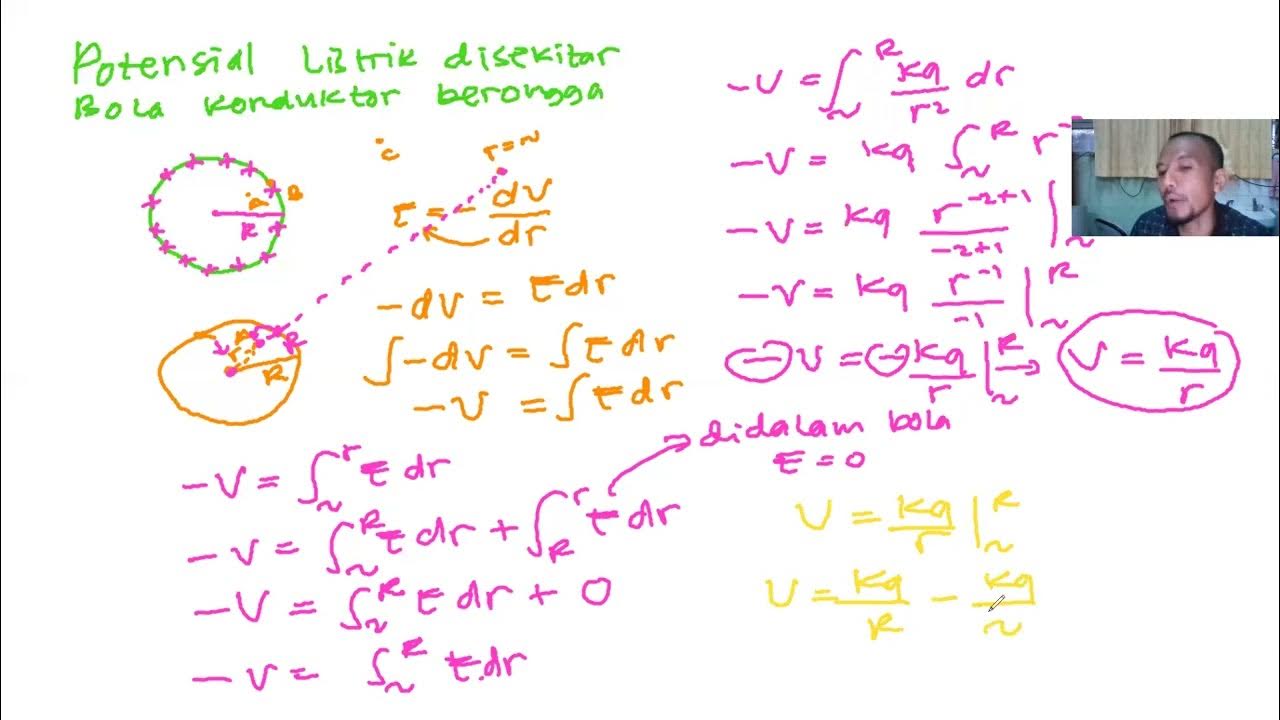 Potensial Listrik disekitar
Bola konduktor berongga
c
r = ~
A B
R
E = - dV/dr
-dV = E dr
∫ -dV = ∫ E dr
-V = ∫ E dr
A R
r
R
-V = ∫_~^r E dr
-V = ∫_~^R E dr + ∫_R^r E dr
-V = ∫_~^R E dr + 0
-V = ∫_~^R E. dr
-V = ∫_~^R kq/r² dr
-V = kq ∫_~^R r^-
-V = kq r^(-2+1)/(-2+1) |_~
-V = kq r^(-1)/(-1) |_~^R
-V = - kq/r |_~^R → V = kq/r
→ didalam bola
E = 0
V = kq/r |_~^R
V = kq/R - kq/~